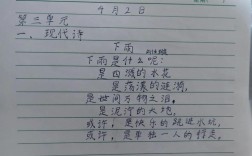 4月2日
第三单元
一、现代诗
下雨
下雨是什么呢:
是白溅的水花
是荡漾的涟漪,
是世间万物之泪。
是泥泞的大地,
或许,是快乐的跳进水坑,
或许,是单独一人的行走,